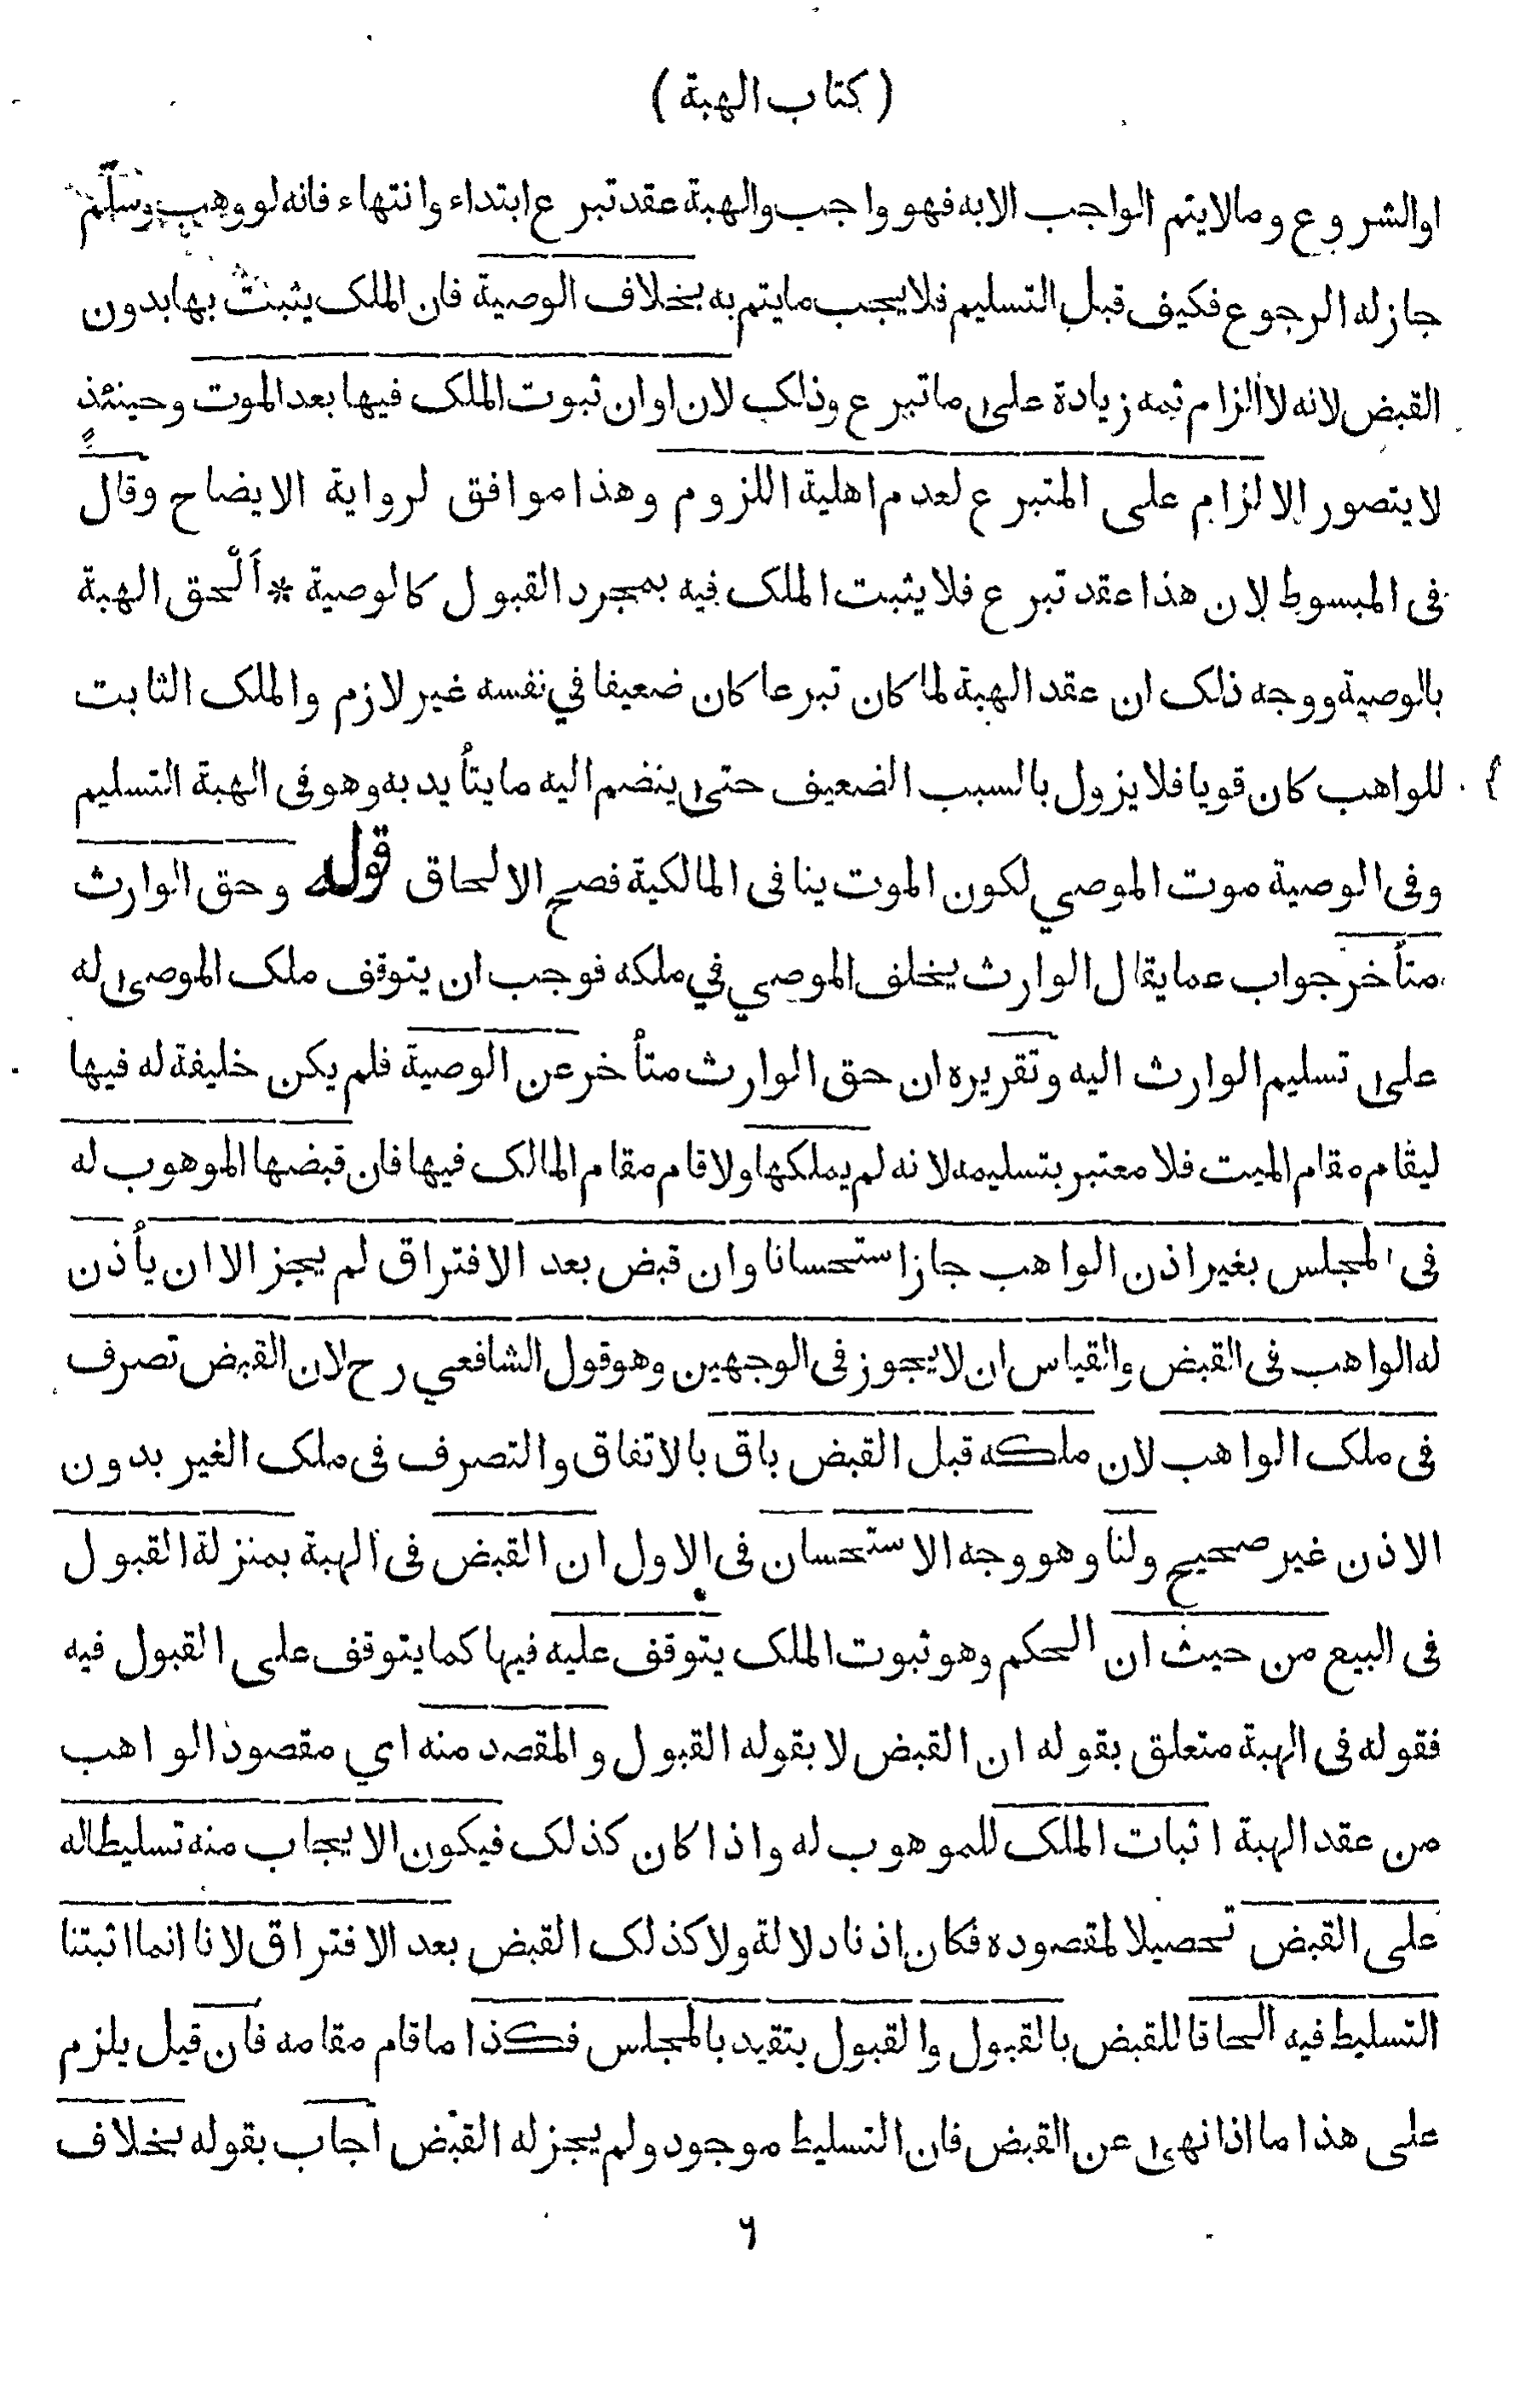 ( كتاب الهبة )
او الشروع وما لا يتم الواجب الا به فهو واجب والهبة عقد تبرع ابتداء وانتهاء فانه لو وهب وسلّم
جاز له الرجوع فكيف قبل التسليم فلا يجب ما يتم به بخلاف الوصية فان الملك يثبت بها بدون
القبض لانه لا الزام ثمه زيادة على ما تبرع وذلك لان اوان ثبوت الملك فيها بعد الموت وحينئذ
لا يتصور الالزام على المتبرع لعدم اهلية اللزوم وهذا موافق لرواية الايضاح وقال
فى المبسوط لان هذا عقد تبرع فلا يثبت الملك فيه بمجرد القبول كالوصية * اَلْحق الهبة
بالوصية ووجه ذلك ان عقد الهبة لما كان تبرعا كان ضعيفا في نفسه غير لازم والملك الثابت
للواهب كان قويا فلا يزول بالسبب الضعيف حتى ينضم اليه ما يتأيد به وهو فى الهبة التسليم
وفى الوصية موت الموصي لكون الموت ينافى المالكية فصح الالحاق قوله وحق الوارث
متأخر جواب عما يقال الوارث يخلف الموصي في ملكه فوجب ان يتوقف ملك الموصى له
على تسليم الوارث اليه وتقريره ان حق الوارث متأخر عن الوصية فلم يكن خليفة له فيها
ليقام مقام الميت فلا معتبر بتسليمه لانه لم يملكها ولا قام مقام المالك فيها فان قبضها الموهوب له
فى المجلس بغير اذن الواهب جاز استحسانا وان قبض بعد الافتراق لم يجز الا ان يأذن
له الواهب فى القبض والقياس ان لا يجوز فى الوجهين وهو قول الشافعي رح لان القبض تصرف
فى ملك الواهب لان ملكه قبل القبض باق بالاتفاق والتصرف فى ملك الغير بدون
الاذن غير صحيح ولنا وهو وجه الاستحسان فى الاول ان القبض فى الهبة بمنزلة القبول
فى البيع من حيث ان الحكم وهو ثبوت الملك يتوقف عليه فيها كما يتوقف على القبول فيه
فقوله فى الهبة متعلق بقوله ان القبض لا بقوله القبول والمقصد منه اي مقصود الواهب
من عقد الهبة اثبات الملك للموهوب له واذا كان كذلك فيكون الايجاب منه تسليطا له
على القبض تحصيلا لمقصوده فكان اذنا دلالة ولا كذلك القبض بعد الافتراق لانا انما اثبتنا
التسليط فيه الحاقا للقبض بالقبول والقبول يتقيد بالمجلس فكذا ما قام مقامه فان قيل يلزم
على هذا ما اذا نهى عن القبض فان التسليط موجود ولم يجز له القبض اجاب بقوله بخلاف